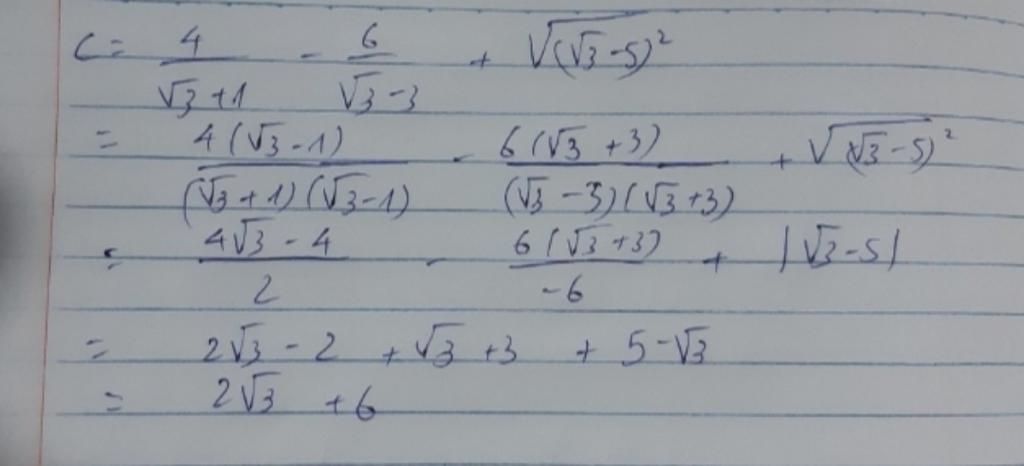 C = \frac{4}{\sqrt{3}+1} - \frac{6}{\sqrt{3}-3} + \sqrt{(\sqrt{3}-5)^2}
= \frac{4(\sqrt{3}-1)}{(\sqrt{3}+1)(\sqrt{3}-1)} - \frac{6(\sqrt{3}+3)}{(\sqrt{3}-3)(\sqrt{3}+3)} + \sqrt{(\sqrt{3}-5)^2}
= \frac{4\sqrt{3}-4}{2} - \frac{6(\sqrt{3}+3)}{-6} + |\sqrt{3}-5|
= 2\sqrt{3} - 2 + \sqrt{3} + 3 + 5 - \sqrt{3}
= 2\sqrt{3} + 6